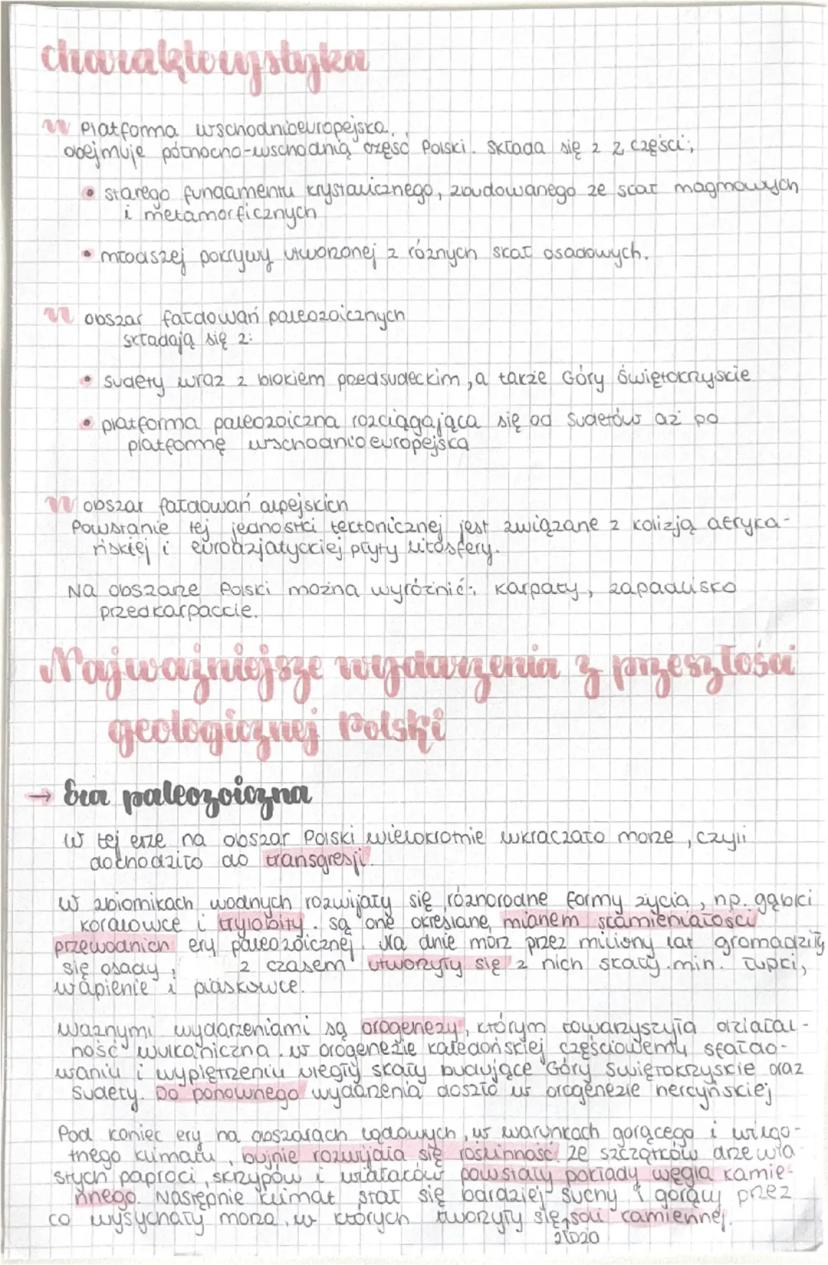 charakterystyka
Platforma wschodnioeuropejska.
obejmuje północno-wschodnią część Polski. Składa się z 2 części;
• starego fundamentu krystalicznego, zbudowanego ze skał magmowych
i metamorficznych
• młodszej pokrywy utworzonej z różnych skał osadowych.
obszar fałdowań paleozoicznych
składają się z:
• sudety wraz z blokiem przedsudeckim, a także Góry Świętokrzyskie
• platforma paleozoiczna rozciągająca się od Sudetów aż po
platformę wschodnioeuropejską
obszar fałdowań alpejskich
Powstanie tej jednostki tectonicznej jest związane z kolizją afryka-
ńskiej i euroazjatyckiej płyty litosfery.
Na obszarze Polski można wyróżnić: Karpaty, zapadlisko
przedkarpackie.
Najważniejsze wydarzenia z przeszłości
geologicznej Polski
→ Era paleozoiczna
W tej erze na obszar Polski wielokrotnie wkraczało morze, czyli
dochodziło do transgresji.
W zbiornikach wodnych rozwijały się różnorodne formy życia, np. gąbki
koralowce i trylobity. są one określane mianem skamieniałości
przewodnich ery paleozoicznej. Na dnie mórz przez miliony lat gromadziły
się osady, z czasem utworzyły się z nich skały. min. łupki,
wapienie i piaskowce.
Ważnymi wydarzeniami są orogenezy, którym towarzyszyła działal-
ność wulkaniczna. w orogenezie kaledońskiej częściowemu sfałdo-
waniu i wypiętrzeniu uległy skały budujące Góry Świętokrzyskie oraz
Sudety. Do ponownego wydarzenia doszło w orogenezie hercyńskiej
Pod koniec ery na obszarach lądowych, w warunkach gorącego i wilgo-
tnego klimatu, bujnie rozwijała się roślinność. Ze szczątków drzewia
stych paproci, skrzypów i widłaków powstały pokłady węgla kamie-
nnego. Następnie klimat stał się bardziej suchy i gorący przez
co wysychały morza, w których tworzyły się soli kamiennej.
złoża